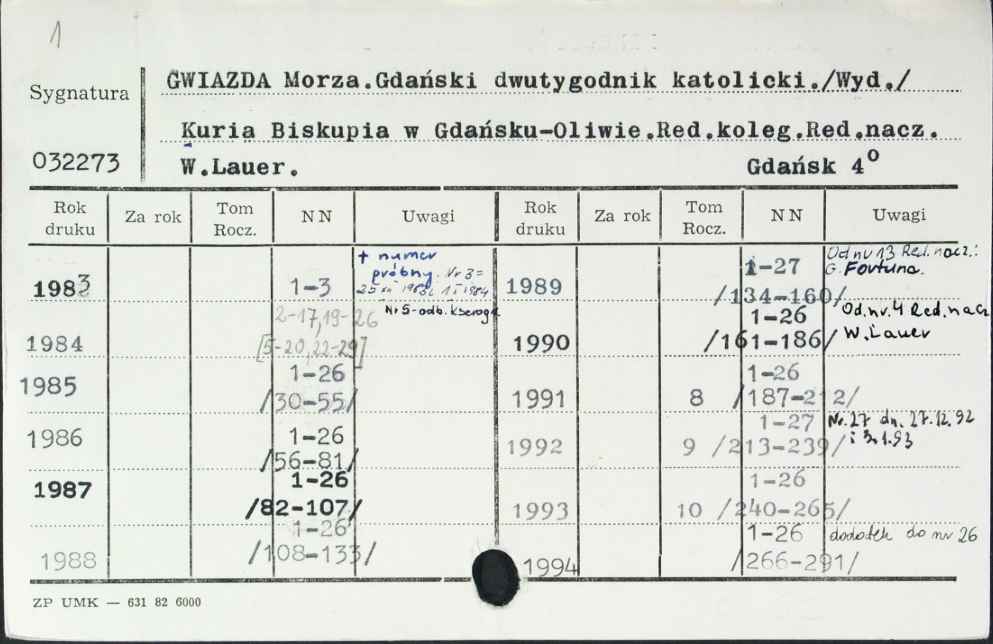 1
GWIAZDA Morza.Gdański dwutygodnik katolicki./Wyd./
Sygnatura
Kuria Biskupia w Gdańsku-Oliwie.Red.koleg.Red.nacz.
032273
W.Lauer. Gdańsk 4°
Rok druku Za rok Tom Rocz. NN Uwagi Rok druku Za rok Tom Rocz. NN Uwagi
1983 1-3 + numer próbny. Nr 3=
Nr 5-odb. kserogr
1984 2-17,19-26
[5-20,22-29]
1985 1-26
/30-55/
1986 1-26
/56-81/
1987 1-26
/82-107/
1988 1-26
/108-133/
1989 1-27 Od nru 13 Red. nacz.:
/134-160/ G. Fortuna.
1990 1-26 Od. nr. 4 Red. nacz
/161-186/ W. Lauer
1991 8 1-26
/187-212/
1992 9 1-27 Nr. 27 dn. 27.12.92
/213-239/ i 3.1.93
1993 10 1-26
/240-265/
1994 1-26 dodatek do nr 26
/266-291/
ZP UMK — 631 82 6000